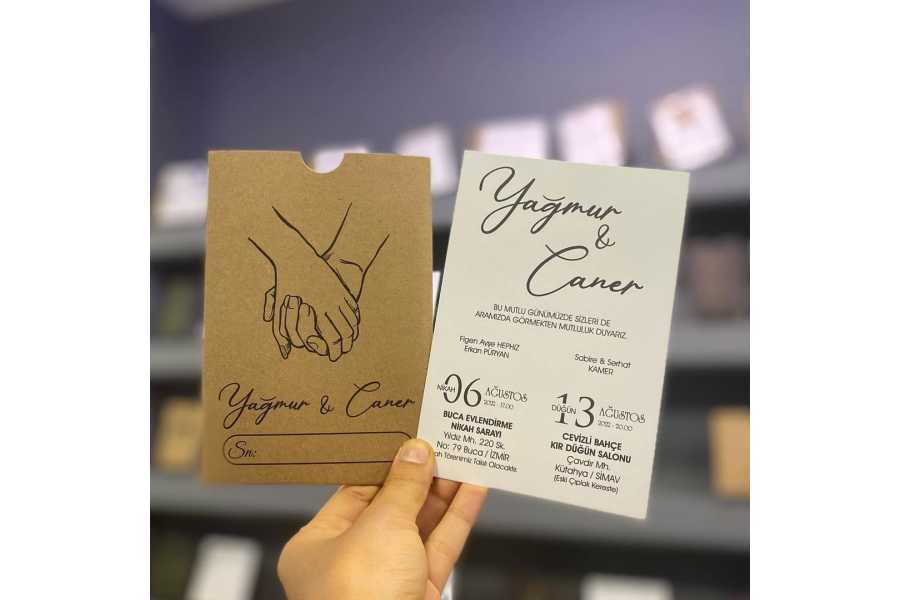 Yağmur & Caner
Sn:
Yağmur
&
Caner
BU MUTLU GÜNÜMÜZDE SİZLERİ DE
ARAMIZDA GÖRMEKTEN MUTLULUK DUYARIZ.
Figen Ayşe HEPHIZ
Erkan PÜRYAN
Sabire & Serhat
KAMER
NİKAH 06 AĞUSTOS
2022 - 17.00
BUCA EVLENDİRME
NİKAH SARAYI
Yıldız Mh. 220 Sk.
No: 79 Buca / İZMİR
Törenimiz Takılı Olacaktır.
DÜĞÜN 13 AĞUSTOS
2022 - 20.00
CEVİZLİ BAHÇE
KIR DÜĞÜN SALONU
Çavdır Mh.
Kütahya / SİMAV
(Eski Çıplak Kereste)